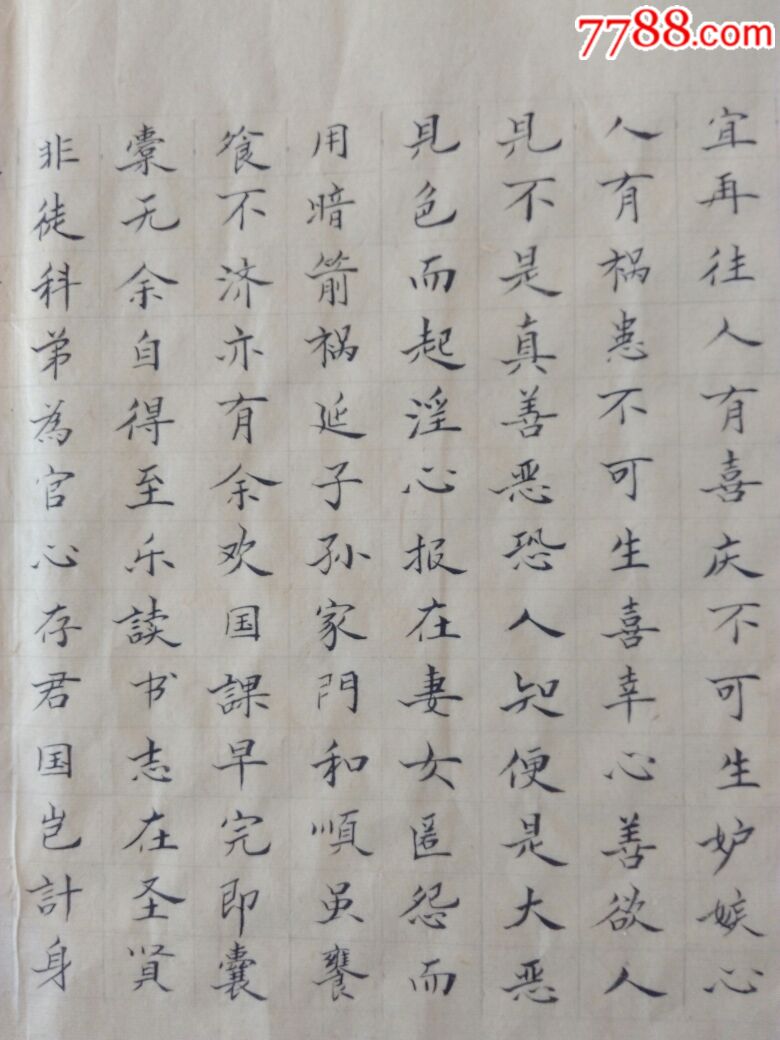 7788.com
宜再往人有喜庆不可生妒嫉心
人有祸患不可生喜幸心善欲人
見不是真善恶恐人知便是大恶
見色而起淫心报在妻女匿怨而
用暗箭祸延子孙家門和順虽饔
飱不济亦有余欢国課早完即囊
橐无余自得至乐読书志在圣贤
非徒科弟為官心存君国岂計身